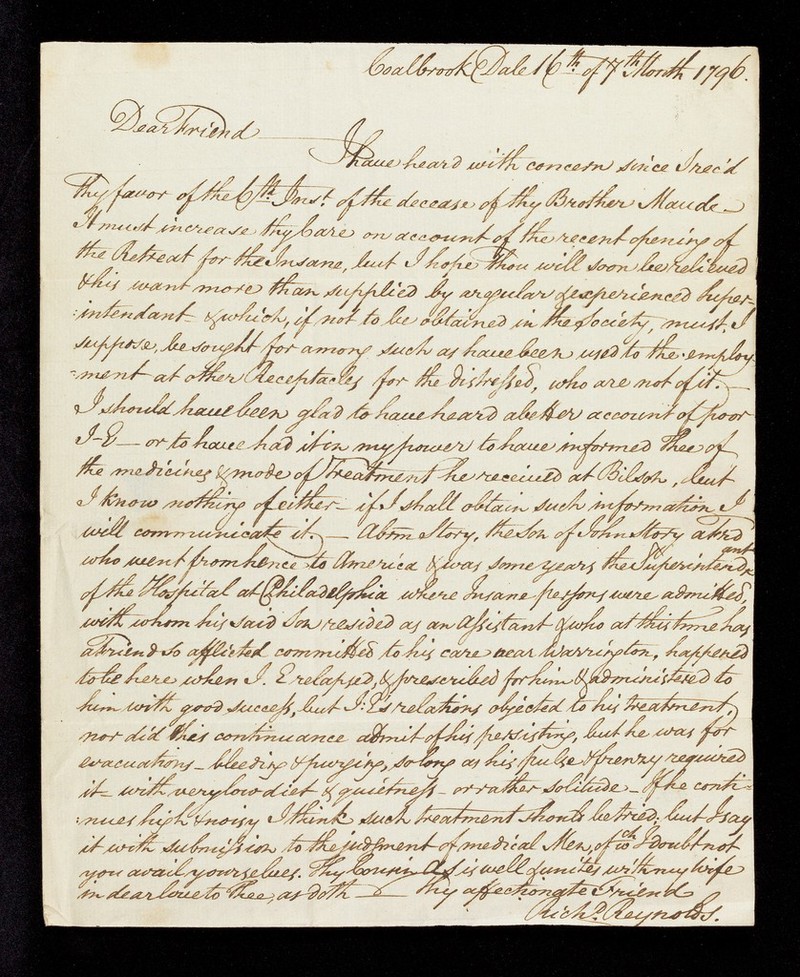 Coalbrook Dale 16th. of 7th Month 1796.
Dear Friend
I have heard with concern since I rec'd
Thy favor of the 6th. Inst. of the decease of thy Brother Maude
It must increase thy Care on account of the recent opening of
the Retreat for the Insane, but I hope Thou will soon be relieved
& his want more than supplied by a regular & experienced Super-
:intendant - & which, if not to be obtained in the Society, must, I
suppose, be sought for among such as have been used to the employ-
:ment at other Receptacles for the distressed, who are not of it. —
I should have been glad to have heard a better account of poor
I-E — or to have had it in my power to have informed Thee of
the medicines & mode of Treatment he received at Bilson, but
I know nothing of either - if I shall obtain such information I
will communicate it. — Abrm Story, the Son of John Story a Frd
who went from hence to America & was some years the Superintend-
ant
of the Hospital at Philadelphia where Insane persons were admitted,
with whom his said Son resided as an Assistant & who at this time has
a Friend so afflicted committed to his care near Warrington, happened
to be here when I. E relapsed, & prescribed for him & administered to
him with good success, but I: E's relations objected to his treatment,
nor did his continuance admit of his persisting, but he was for
evacuations - bleeding & purging, so long as his pulse & frenzy required
it - with very low diet & quietness - or rather solitude - If he conti-
:nues high & noisy I think such treatment should be tried, but I say
it with submission to the judgment of medical Men, of wch I doubt not
you avail yourselves. Thy Cousin is well & unites with my Wife
in dear love to Thee, as doth — Thy affectionate Friend
Richd. Reynolds.